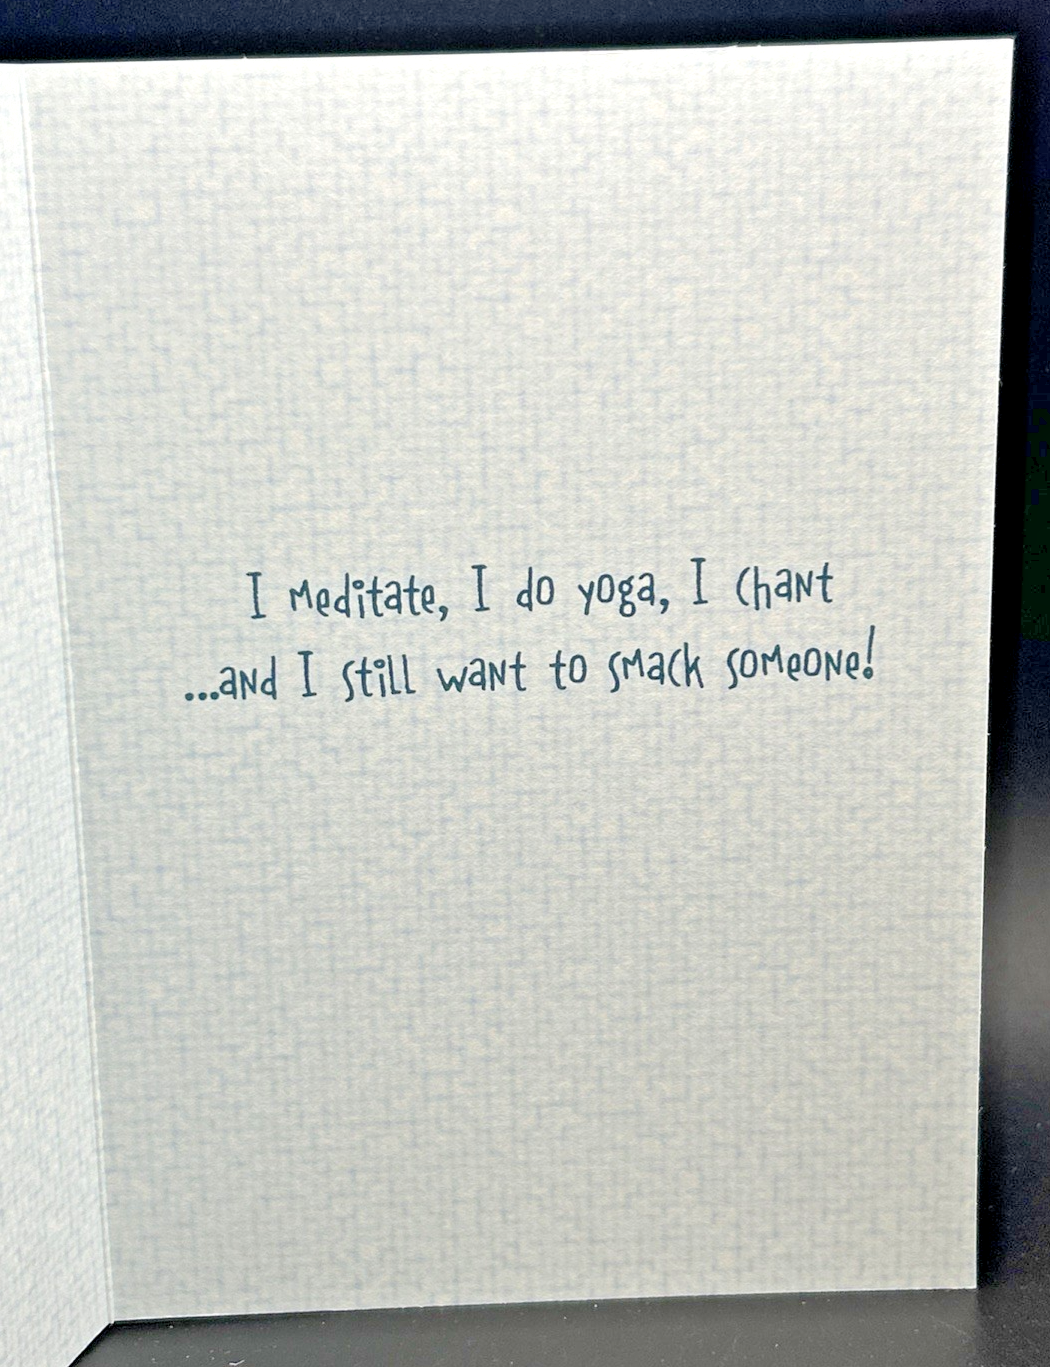 I meditate, I do yoga, I chant
...and I still want to smack someone!